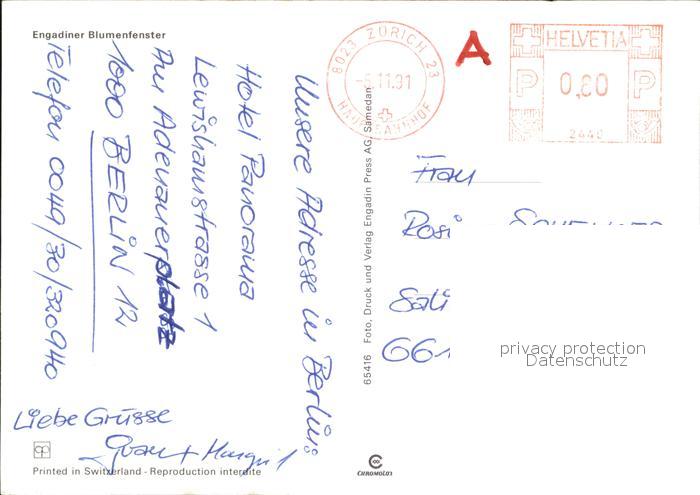 Engadiner Blumenfenster
Unsere Adresse in Berlin:
Hotel Panorama
Lewishamstrasse 1
Am Adenauerplatz
1000 BERLIN 12
Telefon 0049/30/320940
Liebe Grüsse
Printed in Switzerland - Reproduction interdite
65416 Foto, Druck und Verlag Engadin Press AG, Samedan
CHROMOLUX
8023 ZÜRICH 23
-5.11.91
HAUPTBAHNHOF
A
HELVETIA
P 0,80 P
2440
Frau
Rosi
661
privacy protection
Datenschutz